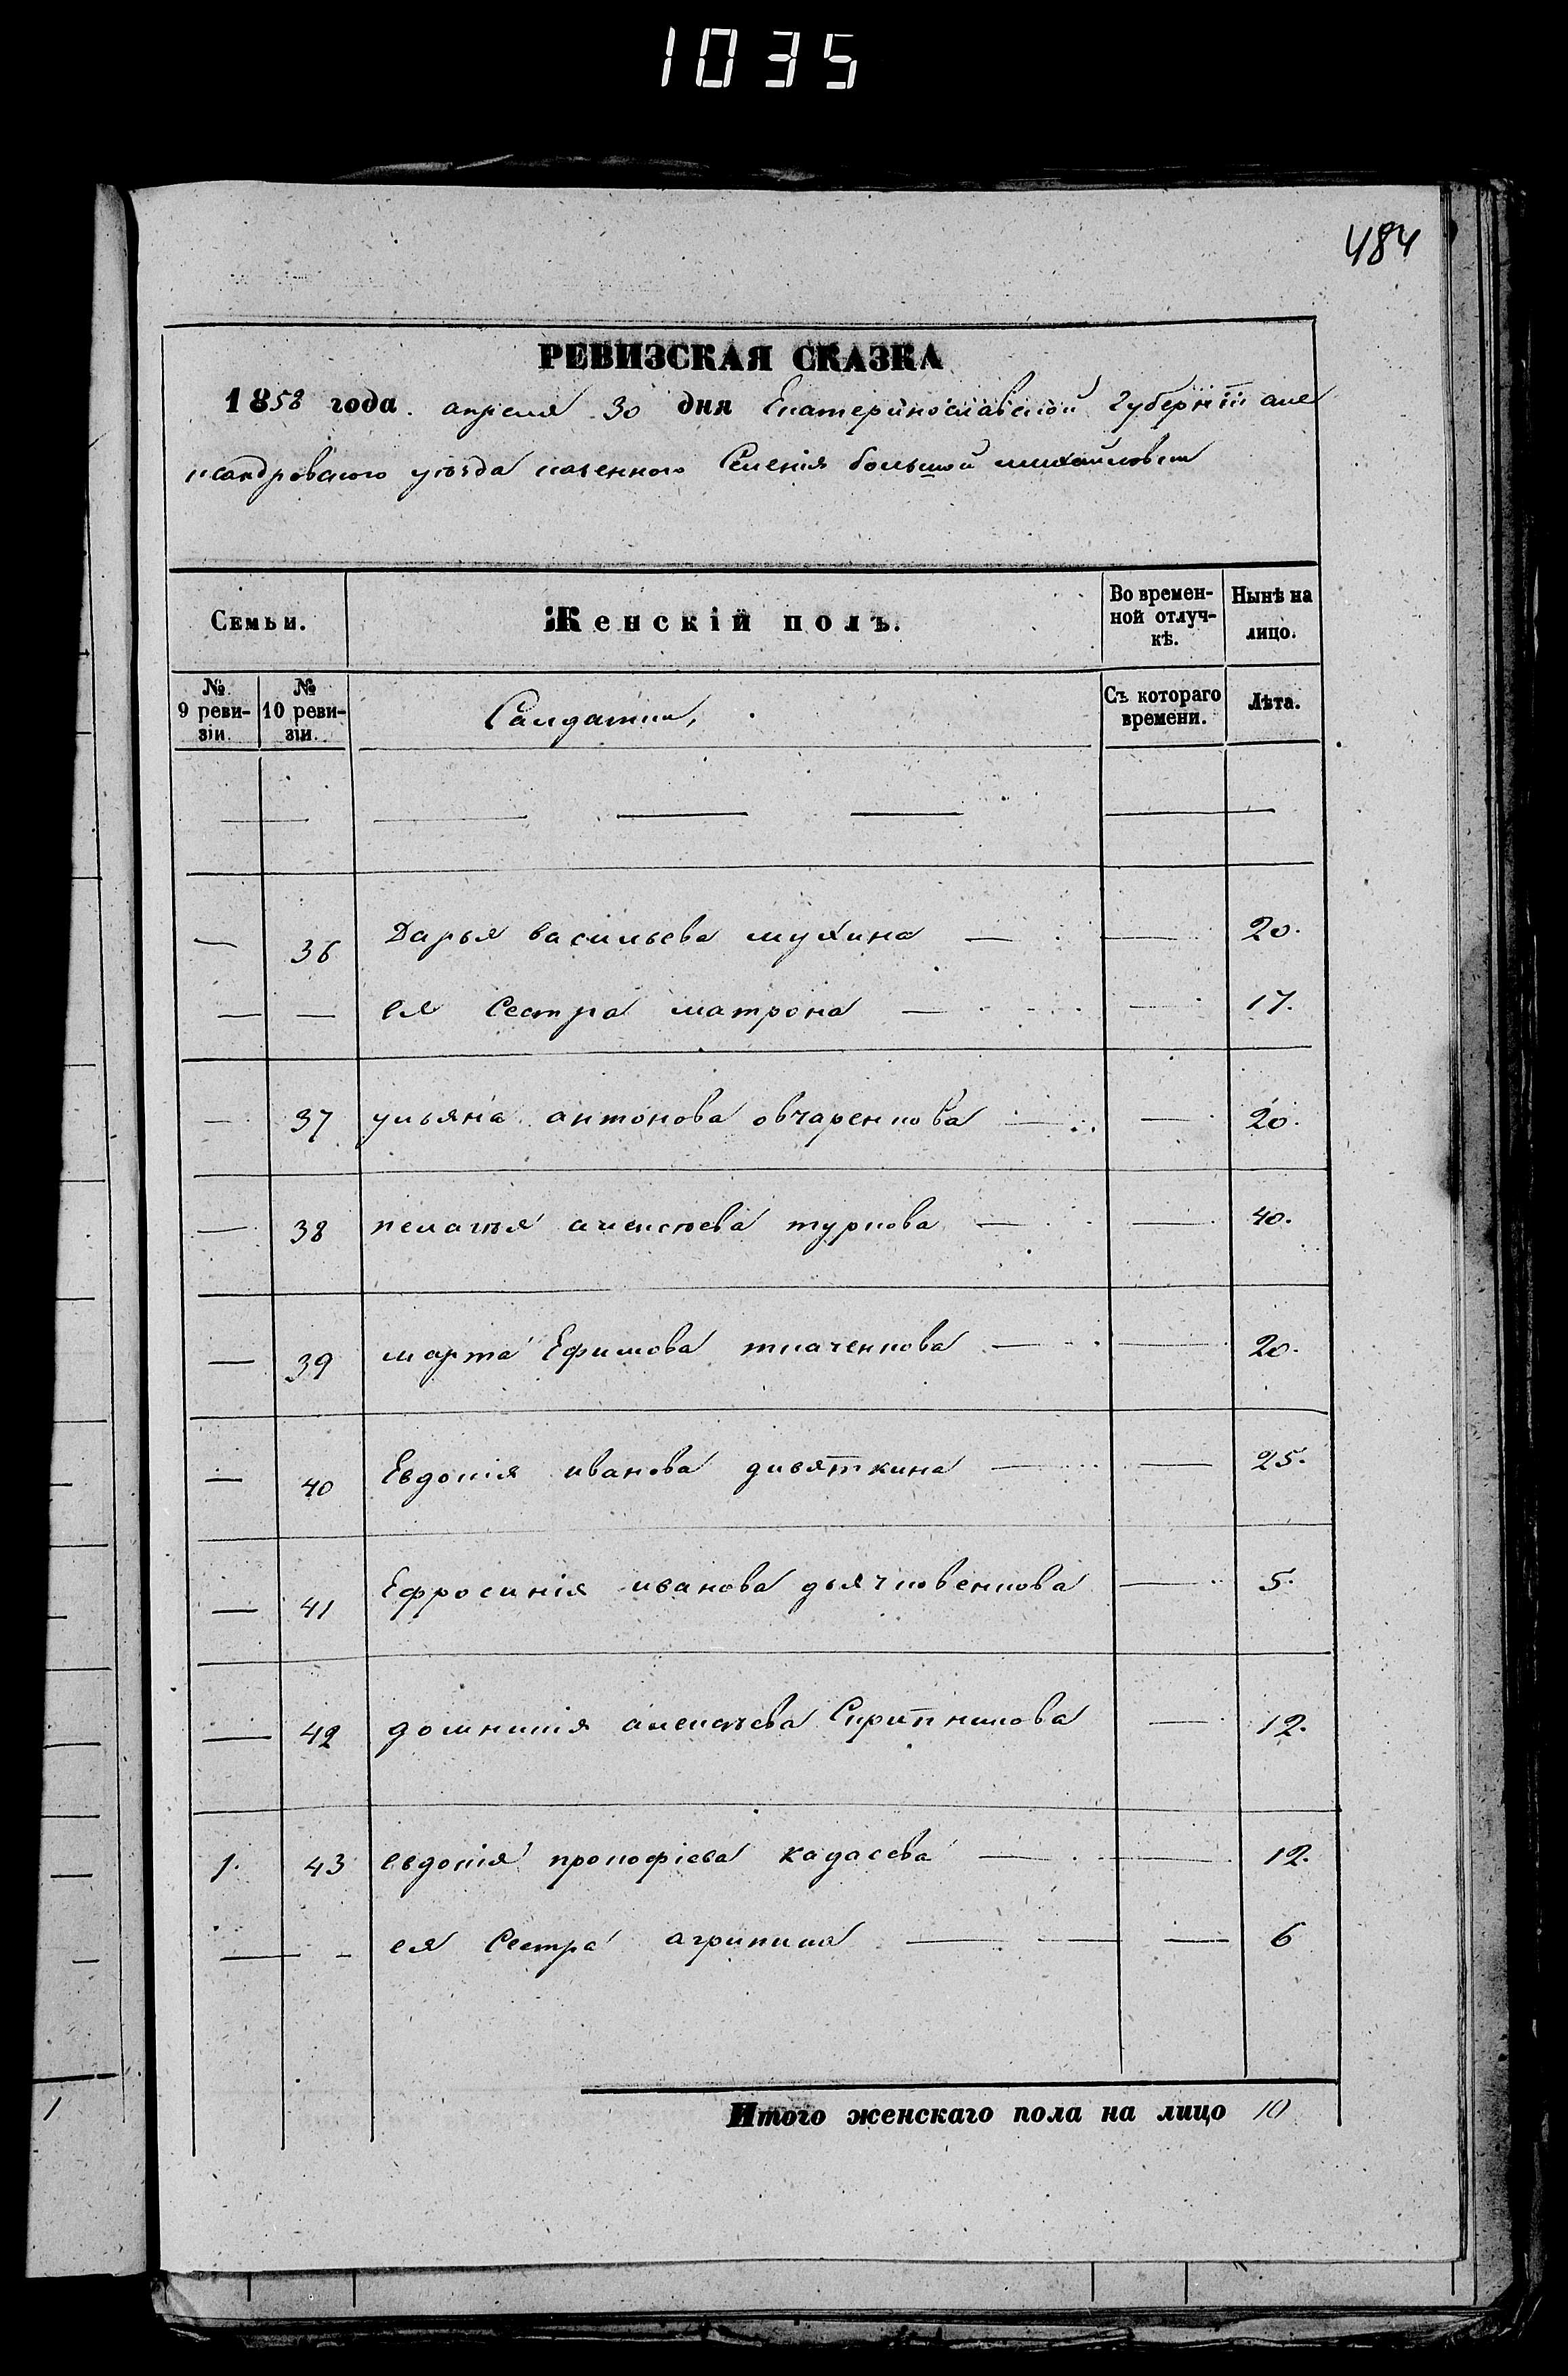 1035
484
РЕВИЗСКАЯ СКАЗКА
1858 года. апреля 30 дня Екатеринославской Губернiи але
ксандровского уезда казенного Селенiя большой михайловки
Семьи. Женскiй полъ. Во времен-ной отлуч-кѣ. Нынѣ на лицо.
№ 9 реви-зiи. № 10 реви-зiи. Салдатки, Съ котораго времени. Лѣта.
— 36 Дарья васильева мухина — — 20.
— — ея Сестра матрона — — 17.
— 37 ульяна антонова овчаренкова — — 20.
— 38 пелагѣя алексѣева туркова — — 40.
— 39 марта Ефимова ткаченкова — — 20.
— 40 Евдокiя иванова дивяткина — — 25.
— 41 Ефросинiя иванова дьячковенкова — 5.
— 42 домникiя алексѣева Скрипникова — 12.
1. 43 евдокiя прокофiева — — 12.
— - ея Сестра агрипина — — — 6
Итого женскаго пола на лицо 10
1